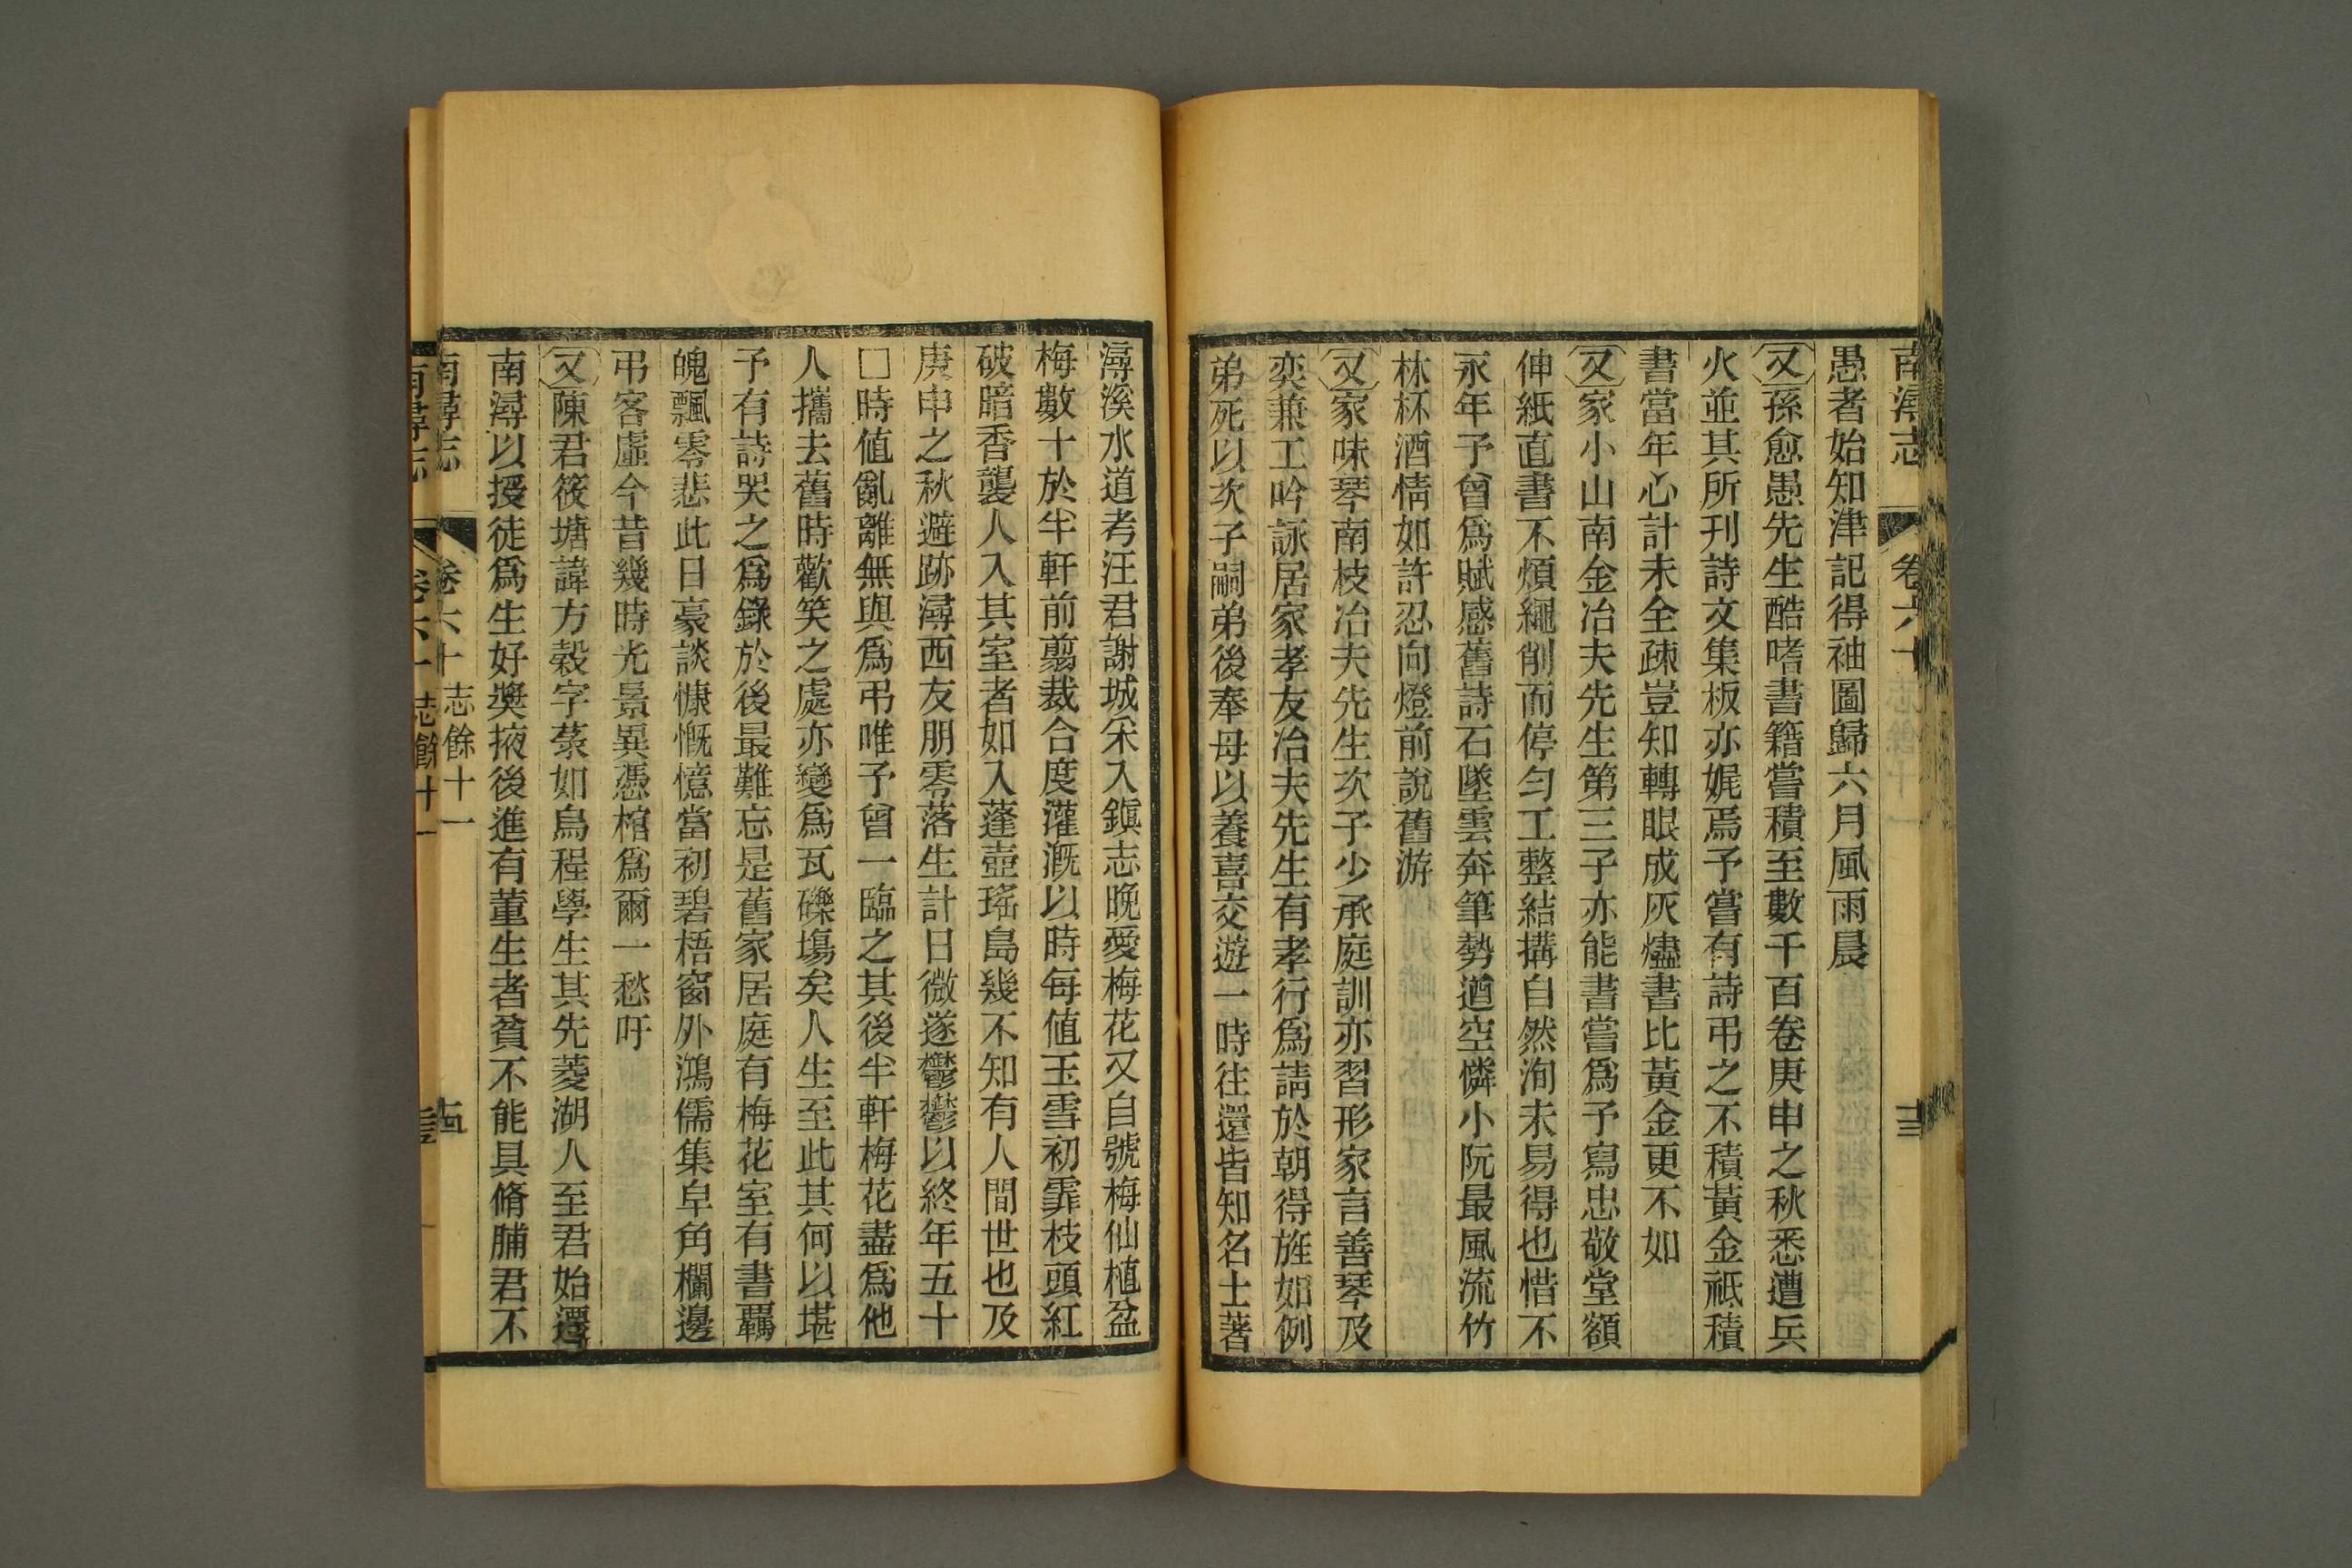 南潯志
卷六十
愚者始知津記得袖圖歸六月風雨晨
又孫愈愚先生酷嗜書籍嘗積至數千百卷庚申之秋悉遭兵
火並其所刊詩文集板亦娓焉予嘗有詩弔之不積黃金祗積
書當年心計未全疎豈知轉眼成灰燼書比黃金更不如
又家小山南金冶夫先生第三子亦能書嘗爲予寫忠敬堂額
伸紙直書不煩繩削而停勻工整結搆自然洵未易得也惜不
永年予曾爲賦感舊詩石墜雲奔筆勢遒空憐小阮最風流竹
林杯酒情如許忍向燈前說舊游
又家味琴南枝冶夫先生次子少承庭訓亦習形家言善琴及
奕兼工吟詠居家孝友冶夫先生有孝行爲請於朝得旌如例
弟死以次子嗣弟後奉母以養喜交遊一時往還皆知名士著
潯溪水道考汪君謝城采入鎭志晚愛梅花又自號梅仙植盆
梅數十於半軒前翦裁合度灌漑以時每値玉雪初霏枝頭紅
破暗香襲人入其室者如入蓬壺瑤島幾不知有人間世也及
庚申之秋避跡潯西友朋零落生計日微遂鬱鬱以終年五十
□時値亂離無與爲弔唯予曾一臨之其後半軒梅花盡爲他
人攜去舊時歡笑之處亦變爲瓦礫塲矣人生至此其何以堪
予有詩哭之爲錄於後最難忘是舊家居庭有梅花室有書羈
魄飄零悲此日豪談慷慨憶當初碧梧窗外鴻儒集皁角欄邊
弔客虛今昔幾時光景異憑棺爲爾一愁吁
又陳君筱塘諱方穀字菉如烏程學生其先菱湖人至君始遷
南潯以授徒爲生好獎掖後進有董生者貧不能具脩脯君不
南潯志
卷六十
志餘十一